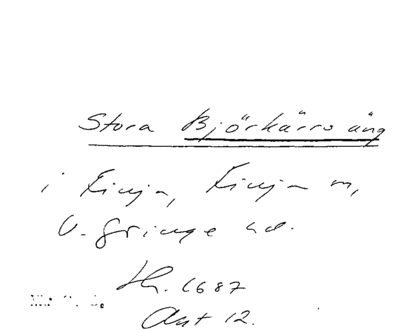 Stora Björkärrs äng
i Finja, Finja sn,
V. Göinge hd.
Lh. 1687
Akt 12.